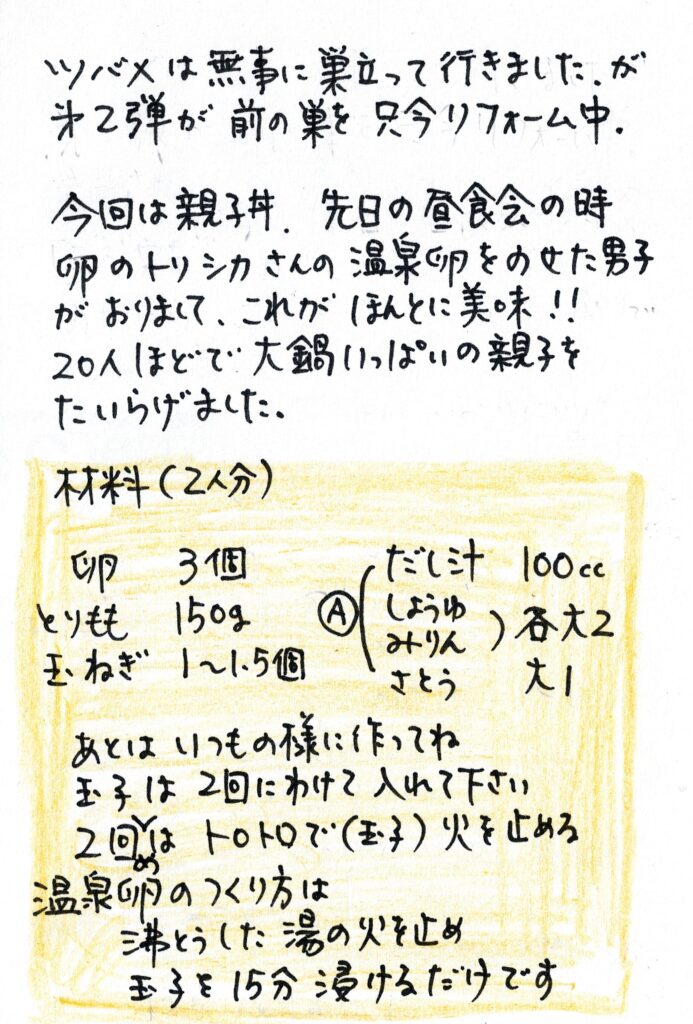 ツバメは無事に巣立って行きました、が
第2弾が前の巣を只今リフォーム中.
今回は親子丼. 先日の昼食会の時
卵のトリシカさんの温泉卵をのせた男子
がおりまして、これがほんとに美味!!
20人ほどで大鍋いっぱいの親子を
たいらげました。
材料(2人分)
卵 3個
とりもも 150g
玉ねぎ 1〜1.5個
Ⓐ
だし汁 100cc
しょうゆ
みりん ) 各大2
さとう 大1
あとはいつもの様に作ってね
玉子は2回にわけて入れて下さい
2回めはトロトロで(玉子)火を止める
温泉卵のつくり方は
沸とうした湯の火を止め
玉子を15分浸けるだけです